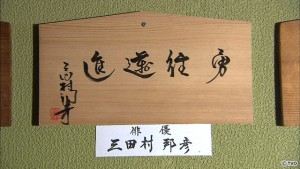 進邁往勇
三田村邦彦
俳優
三田村 邦彦
©TVO